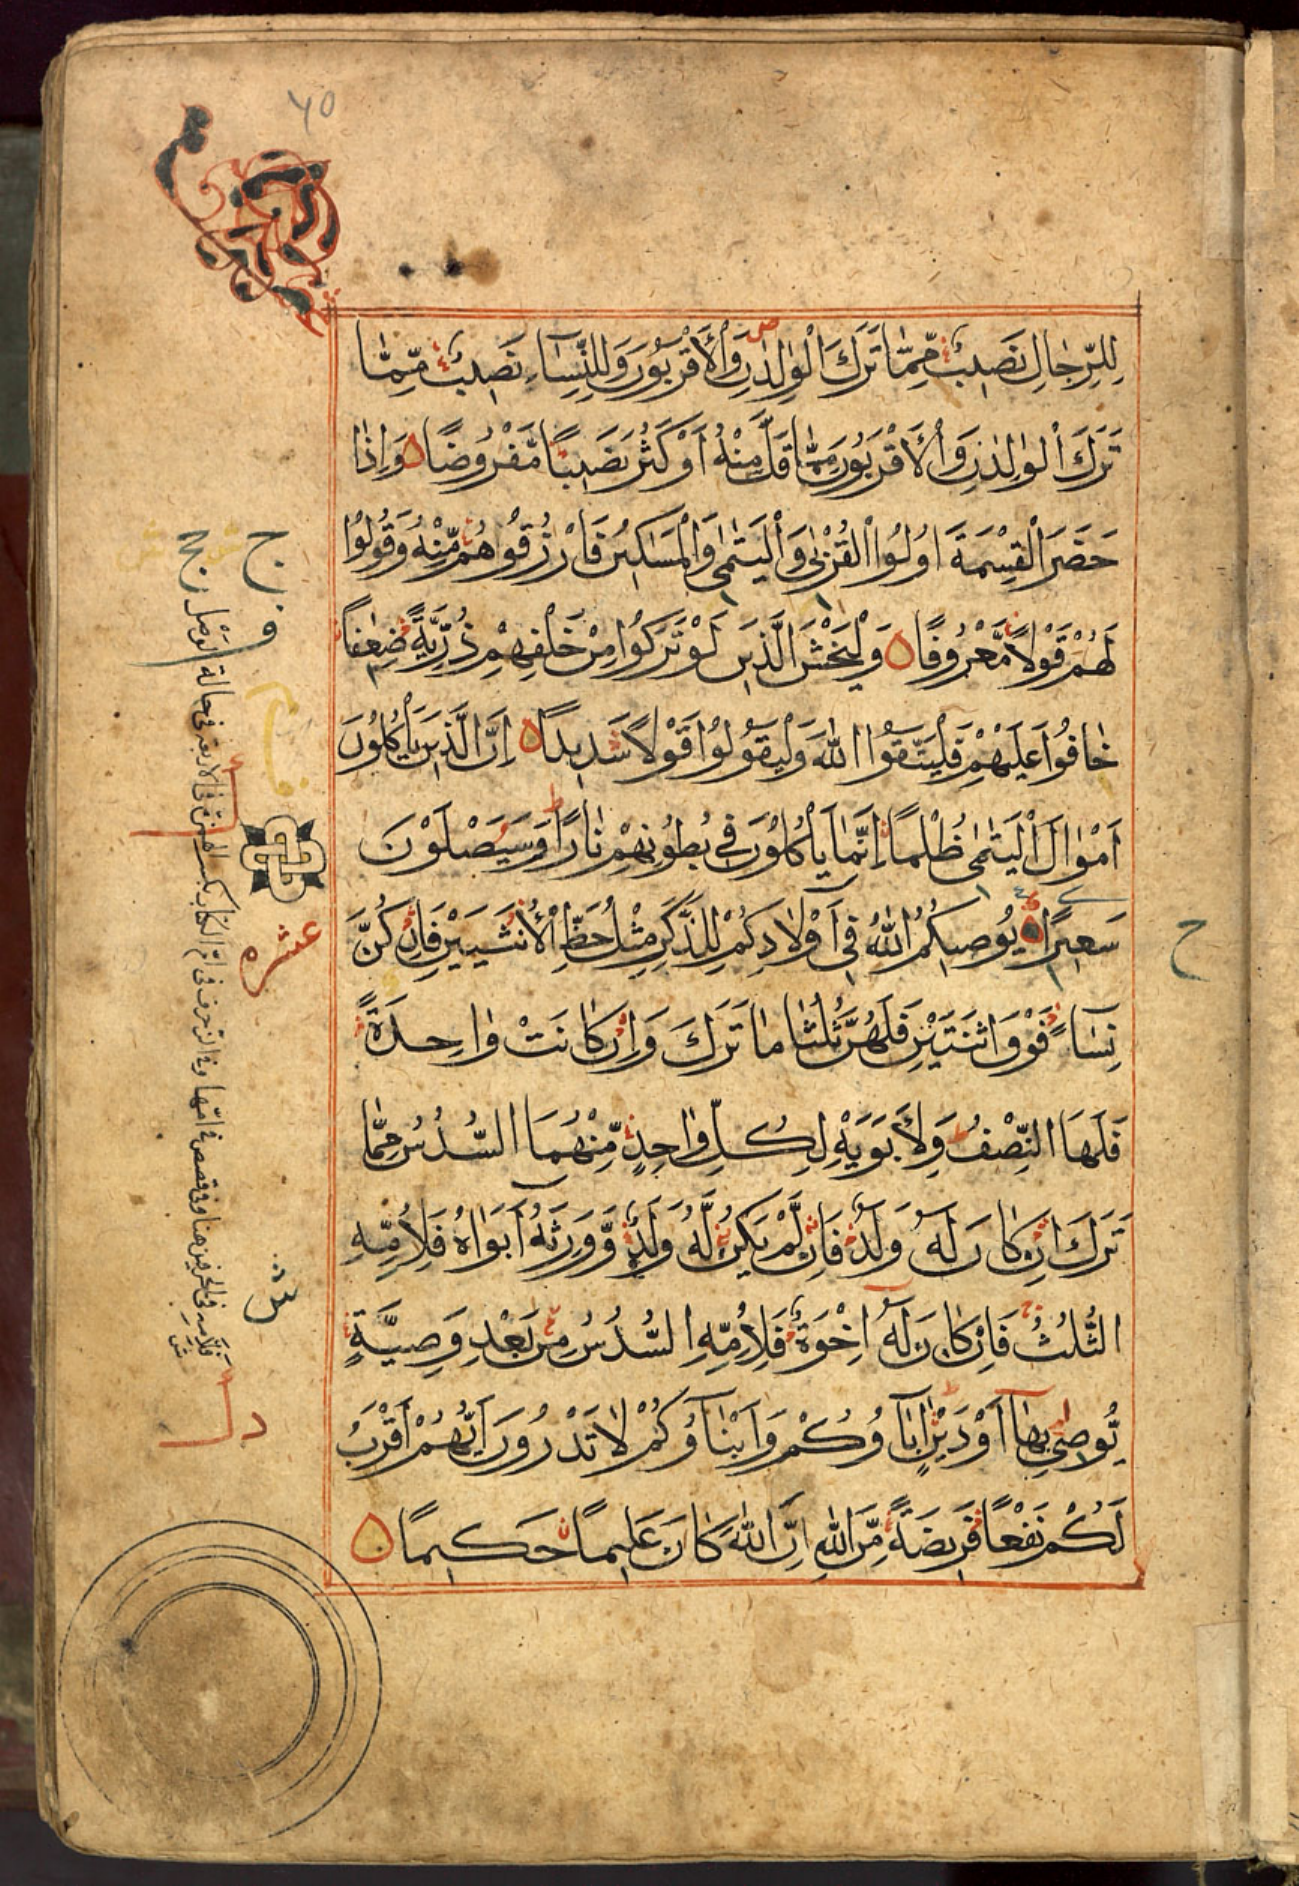 ٦٥
لِلرِّجَالِ نَصِيبٌ مِّمَّا تَرَكَ الْوَالِدٰنِ وَالْأَقْرَبُونَ وَلِلنِّسَآءِ نَصِيبٌ مِّمَّا
تَرَكَ الْوَالِدٰنِ وَالْأَقْرَبُونَ مِمَّا قَلَّ مِنْهُ أَوْ كَثُرَ نَصِيبًا مَّفْرُوضًا وَإِذَا
حَضَرَ الْقِسْمَةَ أُولُوا الْقُرْبٰى وَالْيَتٰمٰى وَالْمَسَاكِينُ فَارْزُقُوهُمْ مِّنْهُ وَقُولُوا
لَهُمْ قَوْلًا مَّعْرُوفًا وَلْيَخْشَ الَّذِينَ لَوْ تَرَكُوا مِنْ خَلْفِهِمْ ذُرِّيَّةً ضِعٰفًا
خَافُوا عَلَيْهِمْ فَلْيَتَّقُوا اللّٰهَ وَلْيَقُولُوا قَوْلًا سَدِيدًا إِنَّ الَّذِينَ يَأْكُلُونَ
أَمْوَالَ الْيَتٰمٰى ظُلْمًا إِنَّمَا يَأْكُلُونَ فِي بُطُونِهِمْ نَارًا وَسَيَصْلَوْنَ
سَعِيرًا يُوصِيكُمُ اللّٰهُ فِي أَوْلَادِكُمْ لِلذَّكَرِ مِثْلُ حَظِّ الْأُنْثَيَيْنِ فَإِنْ كُنَّ
نِسَآءً فَوْقَ اثْنَتَيْنِ فَلَهُنَّ ثُلُثَا مَا تَرَكَ وَإِنْ كَانَتْ وَاحِدَةً
فَلَهَا النِّصْفُ وَلِأَبَوَيْهِ لِكُلِّ وَاحِدٍ مِّنْهُمَا السُّدُسُ مِمَّا
تَرَكَ إِنْ كَانَ لَهُ وَلَدٌ فَإِنْ لَّمْ يَكُنْ لَّهُ وَلَدٌ وَّوَرِثَهُ أَبَوَاهُ فَلِأُمِّهِ
الثُّلُثُ فَإِنْ كَانَ لَهُ إِخْوَةٌ فَلِأُمِّهِ السُّدُسُ مِنْ بَعْدِ وَصِيَّةٍ
يُّوصِي بِهَا أَوْ دَيْنٍ اٰبَآؤُكُمْ وَأَبْنَآؤُكُمْ لَا تَدْرُونَ أَيُّهُمْ أَقْرَبُ
لَكُمْ نَفْعًا فَرِيضَةً مِّنَ اللّٰهِ إِنَّ اللّٰهَ كَانَ عَلِيمًا حَكِيمًا
عشره
ح